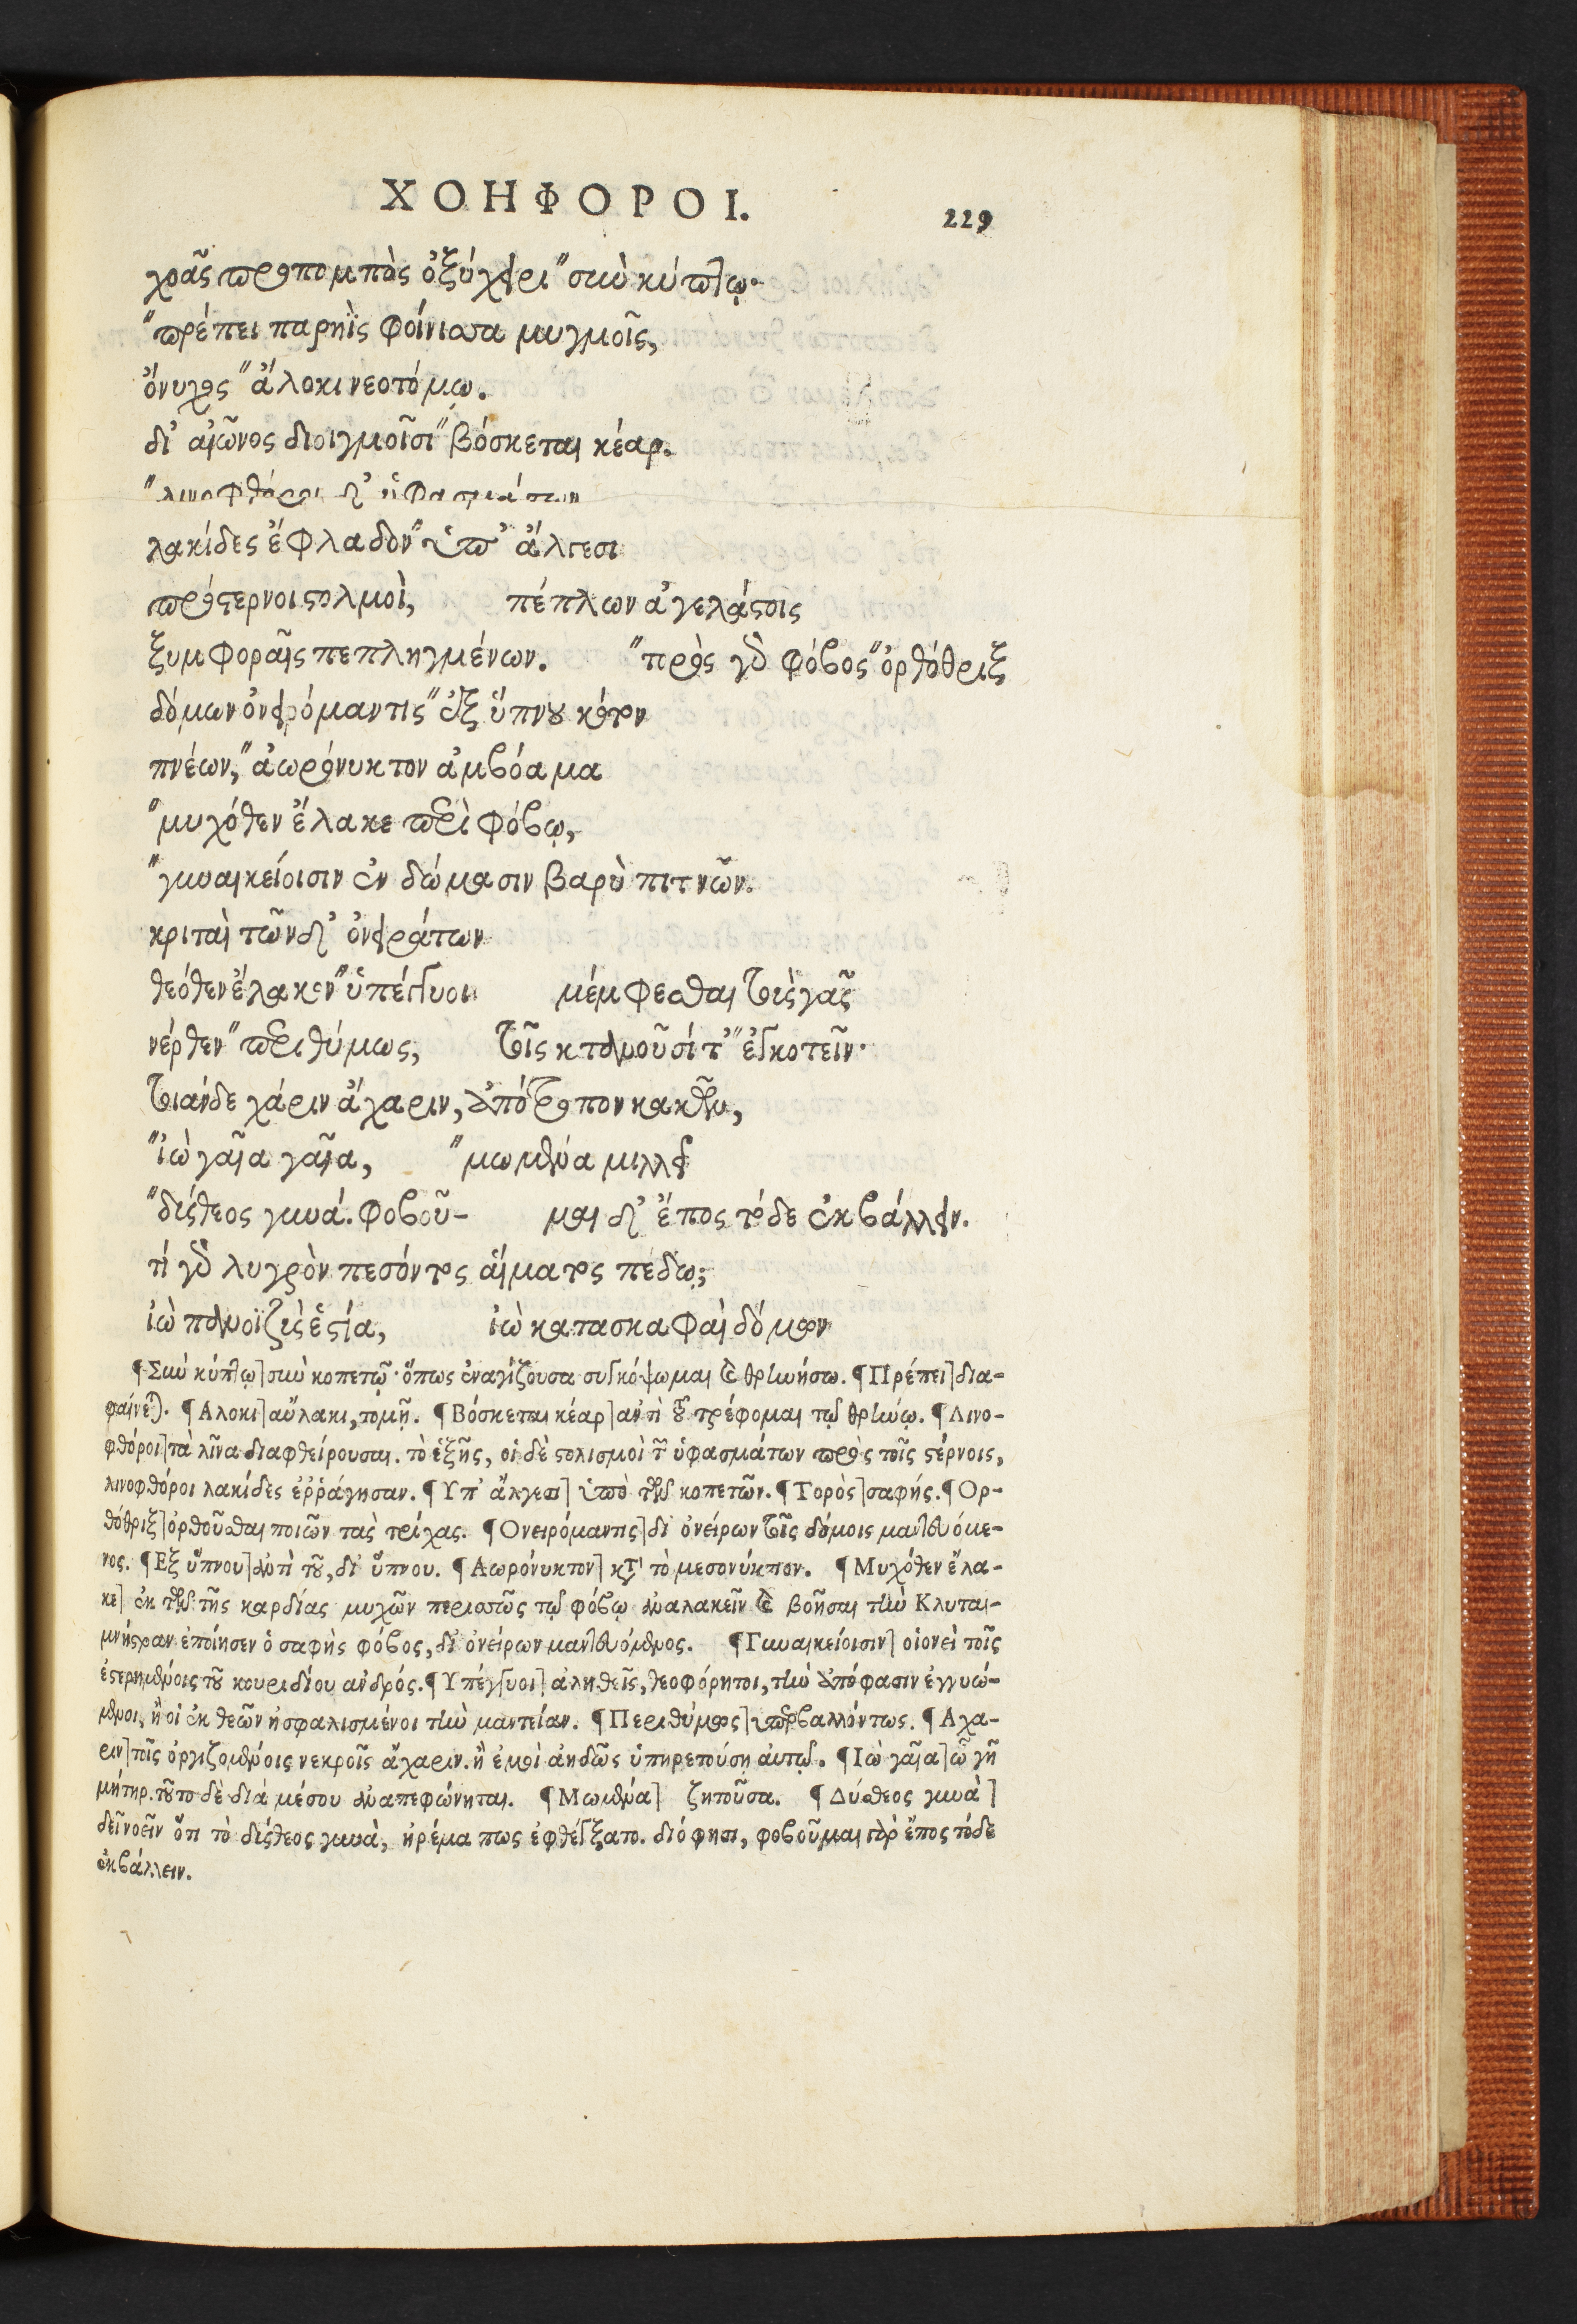 ΧΟΗΦΟΡΟΙ.
229
χοᾶς προπομπὸς ὀξύχειρι "σιὺ κύπτῳ·
"πρέπει παρηῒς φοίνισσα μυγμοῖς,
ὄνυχος "ἄλοκι νεοτόμῳ.
δι' αἰῶνος διοιγμοῖσι "βόσκεται κέαρ.
"λινοφθόροι δ' ὑφασμάτων
λακίδες ἔφλαδον "ὑπ' ἄλγεσι
πρόστερνοι στολμοὶ, πέπλων ἀγελάστοις
ξυμφοραῖς πεπληγμένων. "πρὸς γὰρ φόβος "ὀρθόθριξ
δόμων ὀνειρόμαντις "ἐξ ὕπνου κότον
πνέων, "ἀωρόνυκτον ἀμβόαμα
"μυχόθεν ἔλακε περὶ φόβῳ,
"γυναικείοισιν ἐν δώμασιν βαρὺ πιτνῶν.
κριταὶ τῶνδ' ὀνειράτων
θεόθεν ἔλακον "ὑπέγγυοι μέμφεσθαι τοὺς γᾶς
νέρθεν "περιθύμως, τοῖς κτανοῦσί τ' "ἐγκοτεῖν·
τοιάνδε χάριν ἄχαριν, ἀπότροπον κακῶν,
"ἰὼ γαῖα γαῖα, "μωμένα μιλλεῖ
"δύσθεος γυνά. φοβοῦ- μαι δ' ἔπος τόδε ἐκβάλλειν.
τί γὰρ λυγρὸν πεσόντος αἵματος πέδῳ;
ἰὼ πάνοϊζὺς ἑστία, ἰὼ κατασκαφαὶ δόμων
¶ Σιὺ κύπτῳ] σιὺ κοπετῷ· ὅπως ἐναγίζουσα συγκόψωμαι καὶ θρηνήσω. ¶ Πρέπει] δια-
φαίνεται. ¶ Αλοκι] αὔλακι, τομῇ. ¶ Βόσκεται κέαρ] ἀντὶ τοῦ τρέφομαι τῷ θρήνῳ. ¶ Λινο-
φθόροι] τὰ λῖνα διαφθείρουσαι. τὸ ἑξῆς, οἱ δὲ στολισμοὶ τῶν ὑφασμάτων πρὸς τοῖς στέρνοις,
λινοφθόροι λακίδες ἐῤῥάγησαν. ¶ Υπ' ἄλγεσι] ὑπὸ τῶν κοπετῶν. ¶ Τορὸς] σαφής. ¶ Ορ-
θόθριξ] ὀρθοῦσθαι ποιῶν τὰς τρίχας. ¶ Ονειρόμαντις] δι' ὀνείρων τοῖς δόμοις μαντευόμε-
νος. ¶ Εξ ὕπνου] ἀντὶ τοῦ, δι' ὕπνου. ¶ Αωρόνυκτον] κατὰ τὸ μεσονύκτιον. ¶ Μυχόθεν ἔλα-
κε] ἐκ τῶν τῆς καρδίας μυχῶν περισσῶς τῷ φόβῳ ἀναλακεῖν καὶ βοῆσαι τὴν Κλυται-
μνήστραν ἐποίησεν ὁ σαφὴς φόβος, δι' ὀνείρων μαντευόμενος. ¶ Γυναικείοισιν] οἱονεὶ τοῖς
ἐστερημένοις τοῦ κουριδίου ἀνδρός. ¶ Υπέγγυοι] ἀληθεῖς, θεοφόρητοι, τὴν ἀπόφασιν ἐγγυώ-
μενοι, ἢ οἱ ἐκ θεῶν ἠσφαλισμένοι τὴν μαντείαν. ¶ Περιθύμως] ὑπερβαλλόντως. ¶ Αχα-
ριν] τοῖς ὀργιζομένοις νεκροῖς ἄχαριν. ἢ ἐμοὶ ἀηδῶς ὑπηρετούσῃ αὐτῷ. ¶ Ιὼ γαῖα] ὦ γῆ
μήτηρ. τοῦτο δὲ διὰ μέσου ἀναπεφώνηται. ¶ Μωμένα] ζητοῦσα. ¶ Δύσθεος γυνὰ]
δεῖ νοεῖν ὅτι τὸ δύσθεος γυνὰ, ἠρέμα πως ἐφθέγξατο. διό φησι, φοβοῦμαι γὰρ ἔπος τόδε
ἐκβάλλειν.